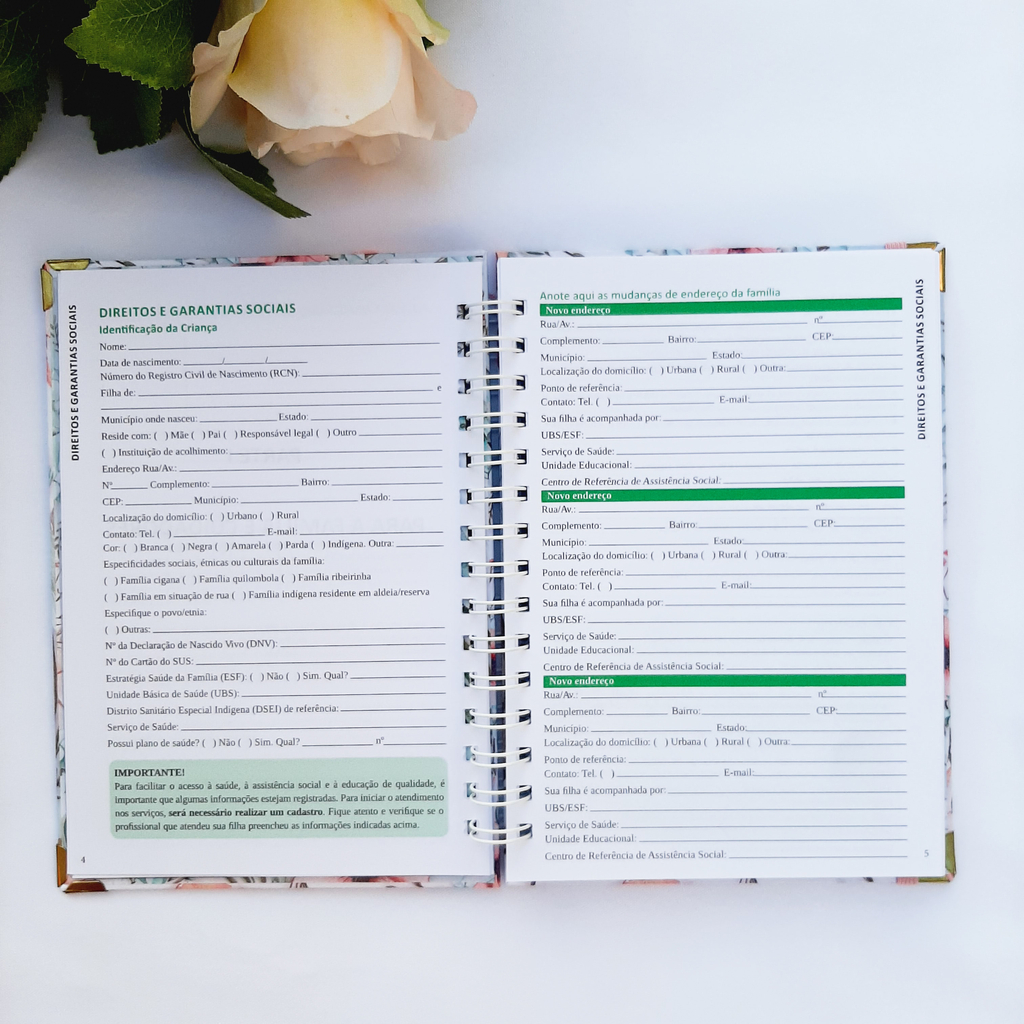 DIREITOS E GARANTIAS SOCIAIS
DIREITOS E GARANTIAS SOCIAIS
Identificação da Criança
Nome:
Data de nascimento: ____/____/____
Número do Registro Civil de Nascimento (RCN):
Filha de: ____ e
Município onde nasceu: ____ Estado:
Reside com: ( ) Mãe ( ) Pai ( ) Responsável legal ( ) Outro
( ) Instituição de acolhimento:
Endereço Rua/Av.:
Nº ____ Complemento: ____ Bairro:
CEP: ____ Município: ____ Estado:
Localização do domicílio: ( ) Urbano ( ) Rural
Contato: Tel. ( ) ____ E-mail:
Cor: ( ) Branca ( ) Negra ( ) Amarela ( ) Parda ( ) Indígena. Outra:
Especificidades sociais, étnicas ou culturais da família:
( ) Família cigana ( ) Família quilombola ( ) Família ribeirinha
( ) Família em situação de rua ( ) Família indígena residente em aldeia/reserva
Especifique o povo/etnia:
( ) Outras:
Nº da Declaração de Nascido Vivo (DNV):
Nº do Cartão do SUS:
Estratégia Saúde da Família (ESF): ( ) Não ( ) Sim. Qual?
Unidade Básica de Saúde (UBS):
Distrito Sanitário Especial Indígena (DSEI) de referência:
Serviço de Saúde:
Possui plano de saúde? ( ) Não ( ) Sim. Qual? ____ nº
IMPORTANTE!
Para facilitar o acesso à saúde, à assistência social e à educação de qualidade, é
importante que algumas informações estejam registradas. Para iniciar o atendimento
nos serviços, será necessário realizar um cadastro. Fique atento e verifique se o
profissional que atendeu sua filha preencheu as informações indicadas acima.
4
Anote aqui as mudanças de endereço da família
Novo endereço
Rua/Av.: ____ nº
Complemento: ____ Bairro: ____ CEP:
Município: ____ Estado:
Localização do domicílio: ( ) Urbana ( ) Rural ( ) Outra:
Ponto de referência:
Contato: Tel. ( ) ____ E-mail:
Sua filha é acompanhada por:
UBS/ESF:
Serviço de Saúde:
Unidade Educacional:
Centro de Referência de Assistência Social:
Novo endereço
Rua/Av.: ____ nº
Complemento: ____ Bairro: ____ CEP:
Município: ____ Estado:
Localização do domicílio: ( ) Urbana ( ) Rural ( ) Outra:
Ponto de referência:
Contato: Tel. ( ) ____ E-mail:
Sua filha é acompanhada por:
UBS/ESF:
Serviço de Saúde:
Unidade Educacional:
Centro de Referência de Assistência Social:
Novo endereço
Rua/Av.: ____ nº
Complemento: ____ Bairro: ____ CEP:
Município: ____ Estado:
Localização do domicílio: ( ) Urbana ( ) Rural ( ) Outra:
Ponto de referência:
Contato: Tel. ( ) ____ E-mail:
Sua filha é acompanhada por:
UBS/ESF:
Serviço de Saúde:
Unidade Educacional:
Centro de Referência de Assistência Social:
5
DIREITOS E GARANTIAS SOCIAIS